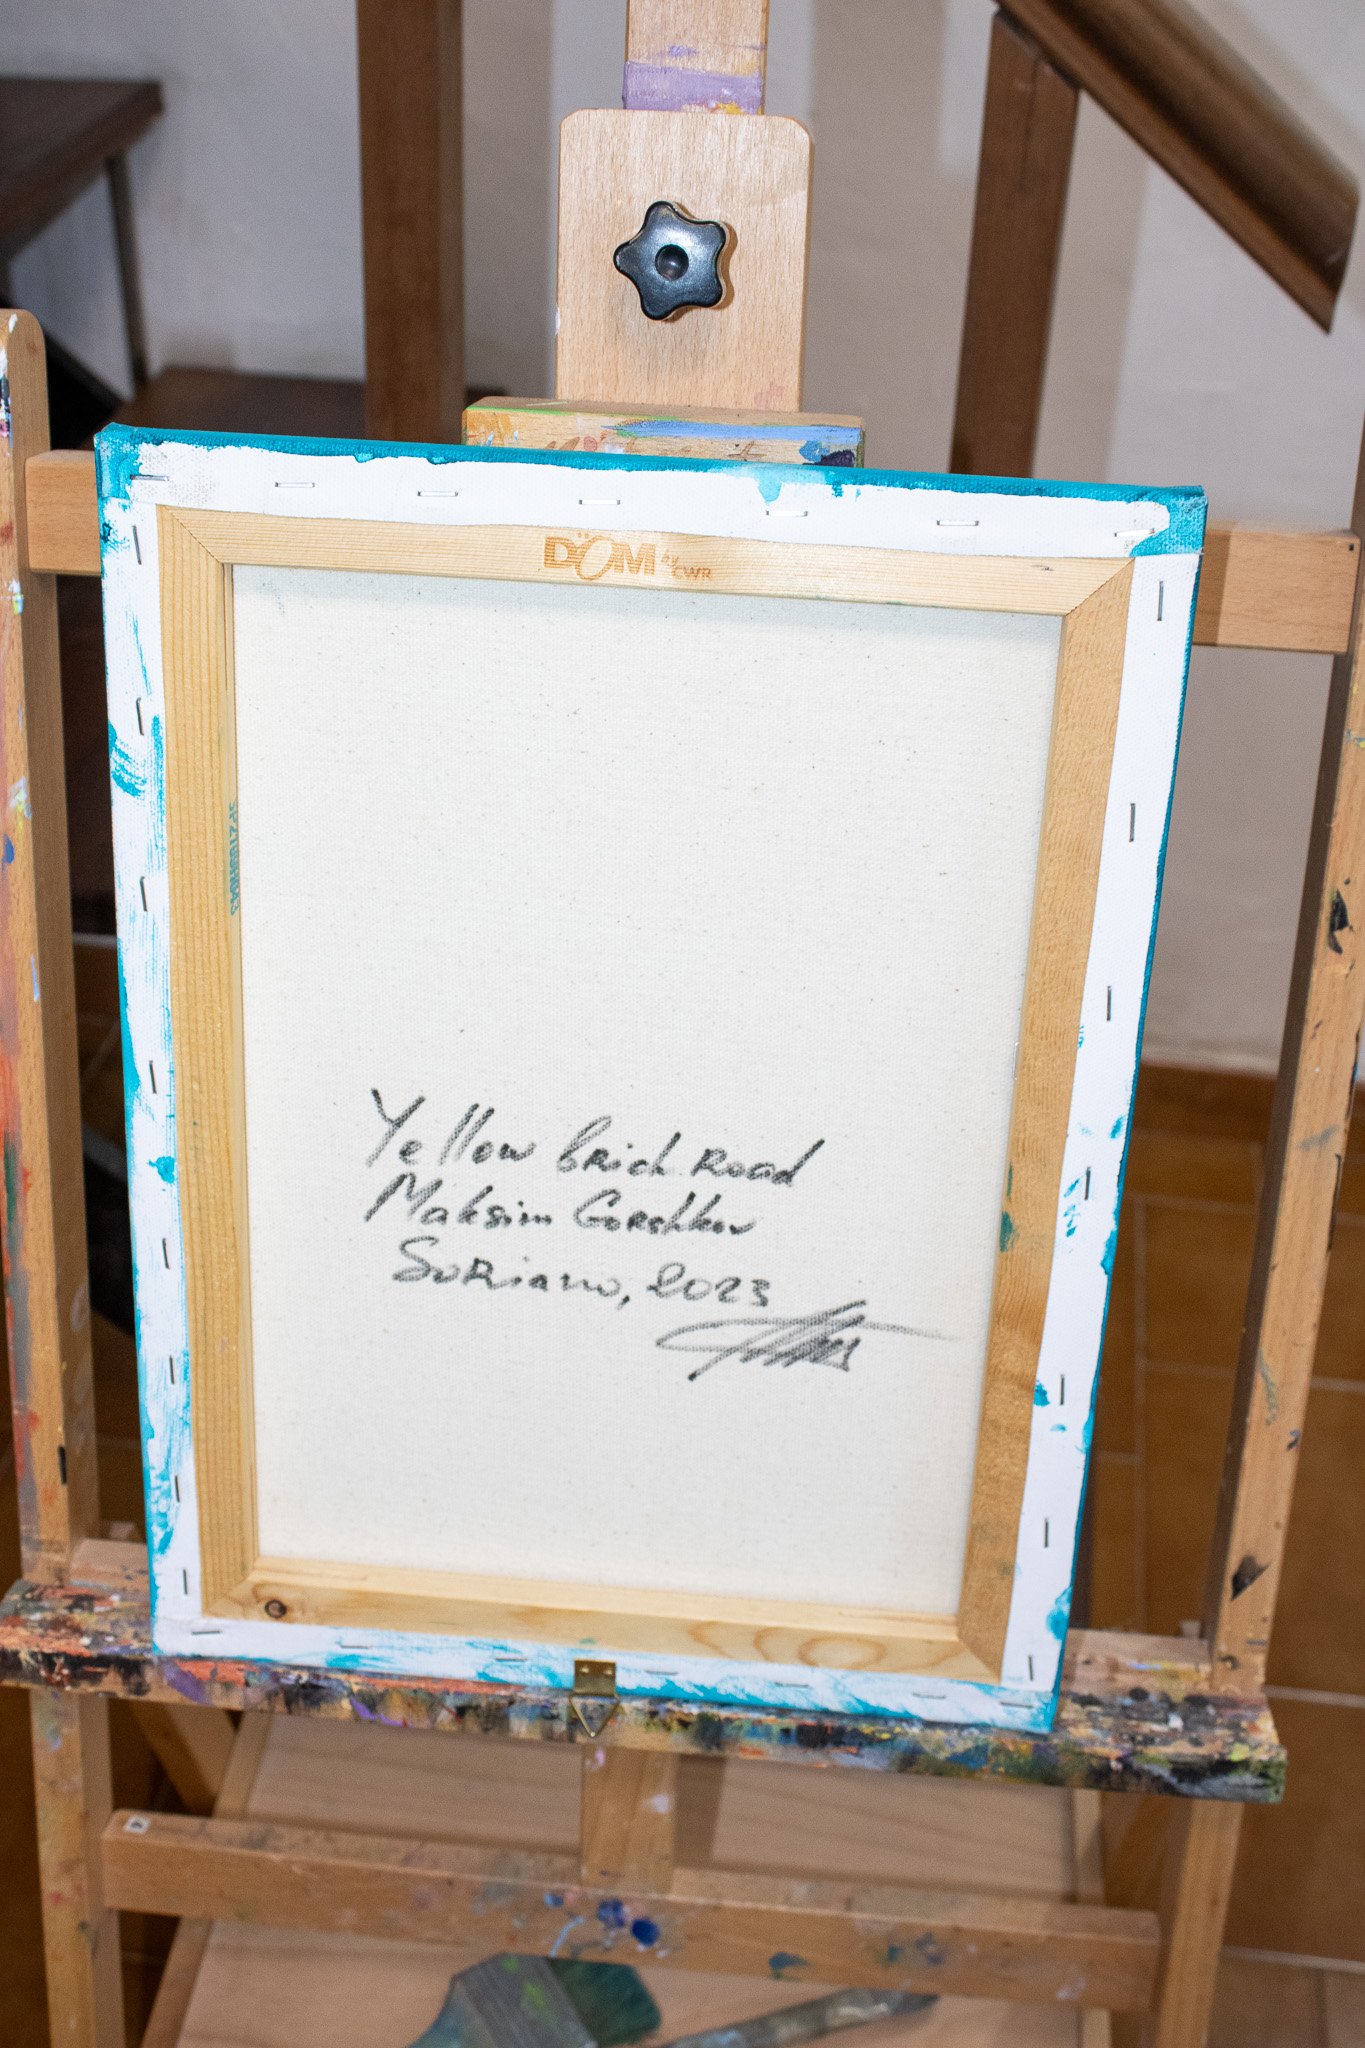 DÖM BY CWR
Yellow brick Road
Maksim Gorshkov
Soriano, 2023